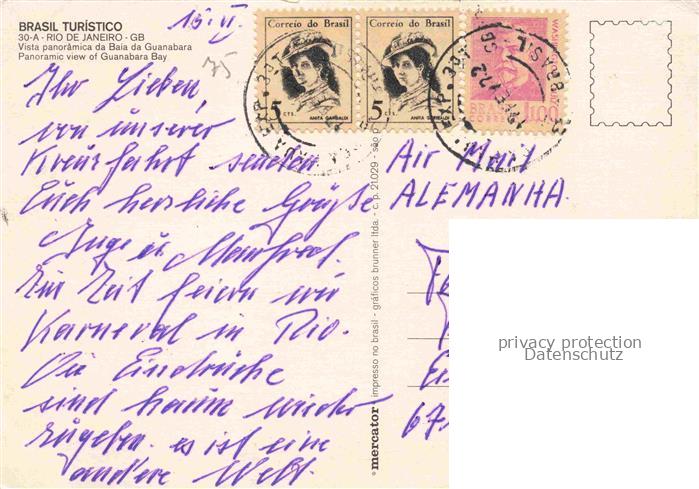 BRASIL TURÍSTICO
30-A - RIO DE JANEIRO - GB
Vista panorâmica da Baia da Guanabara
Panoramic view of Guanabara Bay
75
Correio do Brasil
5 CTS.
ANITA GARIBALDI
Correio do Brasil
5 CTS.
ANITA GARIBALDI
BRASIL
CORREIO
1,00
Ihr Lieben,
von unserer
Kreuzfahrt senden
Euch herzliche Grüße
Inge u. Manfred.
Zur Zeit feiern wir
Karneval in Rio.
Die Eindrücke
sind kaum wieder
zugeben. es ist eine
andere Welt.
mercator impresso no brasil - gráficos brunner ltda. - c. p. 21.029 - são p
Air Mail
ALEMANHA
67
privacy protection
Datenschutz